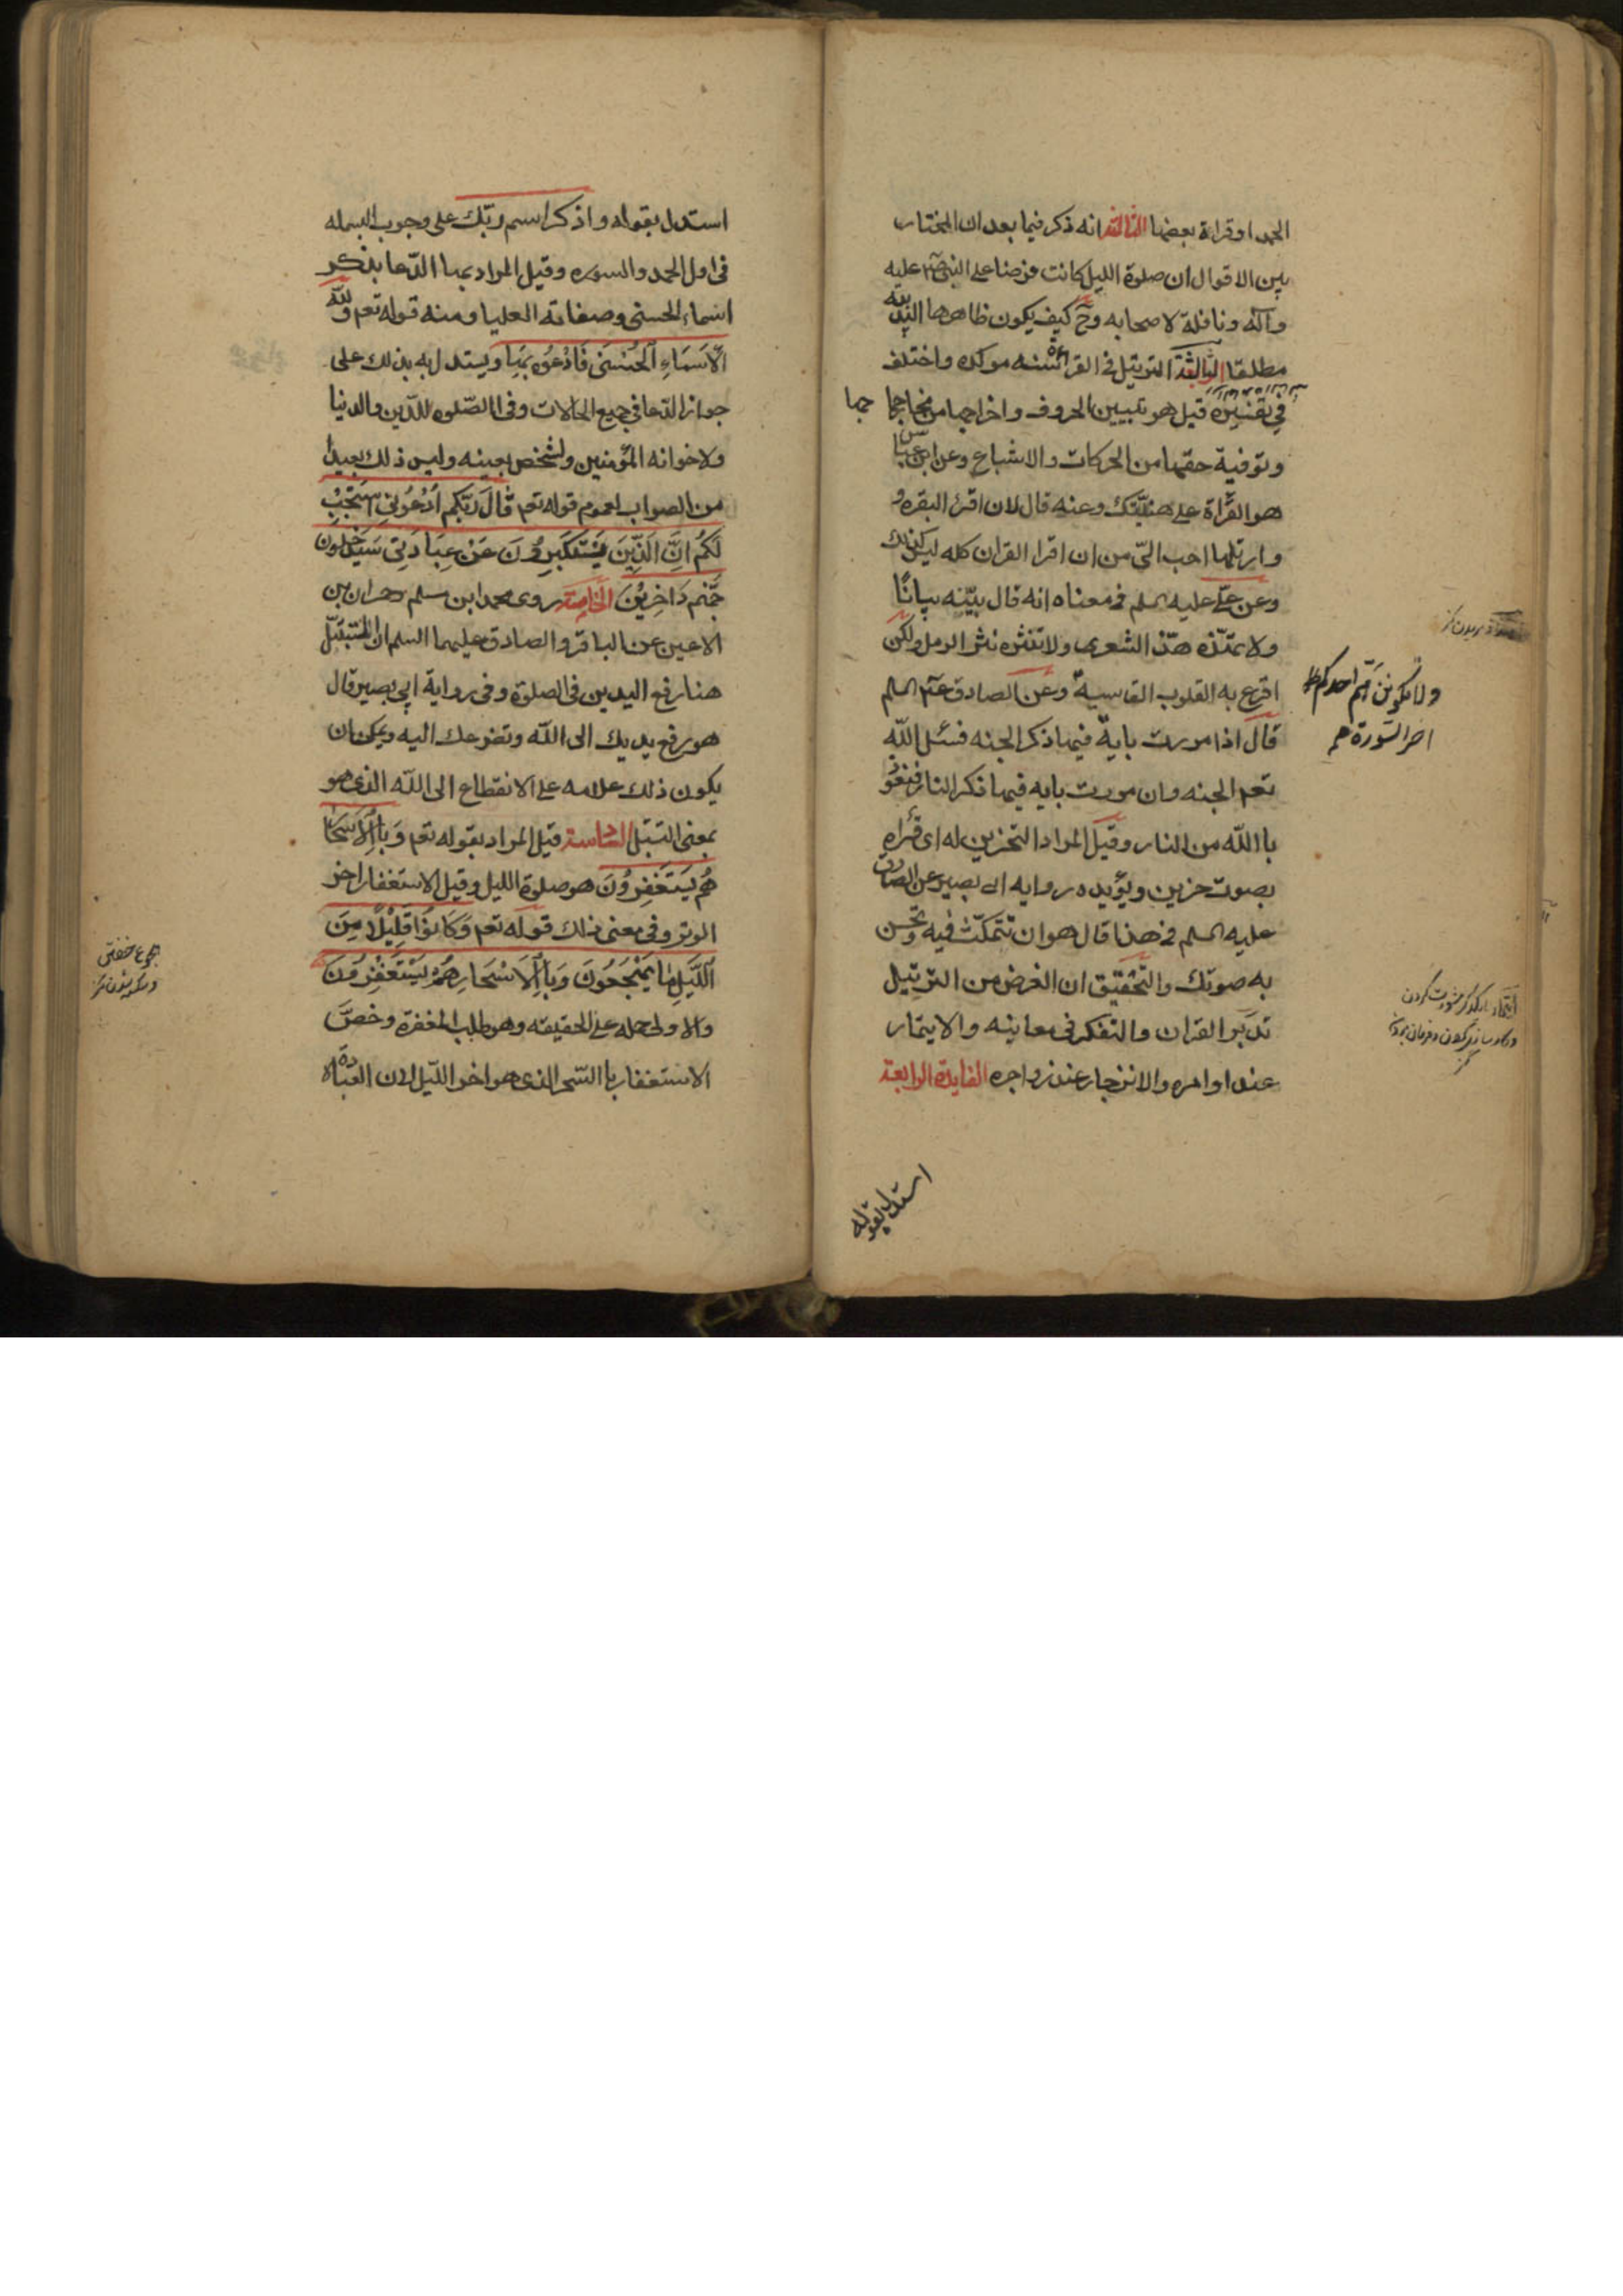 الحمد او قراءة بعضها الثالثة انه ذكر فيما بعد ان المختار
بين الاقوال ان صلوة الليل كانت فرضا على النبى صم عليه
وآله ونافلة لاصحابه وح كيف يكون ظاهرها الندبيه
مطلقا الثالثة الترتيل فى القرائة سنه موكده واختلف
فى تفسيره قيل هو تبيين الحروف واخراجها من مخاجا جها
وتوفية حقها من الحركات والاشباع وعن ابن عباس
هو القرأة على هنيتك وعنه قال لان اقرء البقره و
وارتلها احب الىّ من ان اقرا القران كله ليس كذلك
وعن علىّ عليه السلم فى معناه انه قال بيّنه بيانًا
ولا تمدّه هذّ الشعر ولا تنثره نثر الرمل ولكن
اقرع به القلوب القاسية وعن الصادق عليه السلم
قال اذا مررت باية فيها ذكر الجنه فسئل اللّه
تعم الجنه وان مررت بايه فيها ذكر النار فنعوذ
باالله من النار وقيل المراد التحزين له اى قرأه
بصوت حزين ويؤيده روايه ابى بصير عن الصادق
عليه السلم فى هذا قال هو ان تتمكّث فيه وتحسن
به صوتك والتحقيق ان الغرض من الترتيل
تدبّر القران والتفكر فى معاينه والايتمار
عند اوامره والانزجار عند زواجره الفايدة الرابعة
ولا تكونن هم احدكم
اخر السّورة هم
استدل بقوله
استدل بقوله واذكر اسم ربّك على وجوب البسمله
فى اول الحمد والسوره وقيل المراد بها الدّعا بذكر
اسماء الحسنى وصفاته العليا ومنه قوله تعم وللّه
الْاَسْمَاءِ الْحُسْنَى فَادْعُوهُ بِهَا ويستدل به بذلك على
جواز الدّعا فى جميع الحالات وفى االصّلوه للدّين والدنيا
ولاخوانه المؤمنين ولشخص بعينه وليس ذلك بعيدا
من الصواب لعموم قوله تعم قَالَ رَبُّكم اُدْعُونِى اَسْتَجِبْ
لَكُم اِنَّ الَّذِينَ يَسْتَكْبِرُونَ عَنْ عِبَادَتِى سَيَدْخُلُونَ
جَهَّنم دَاخِرِيْنَ الخامسة روى محمد ابن مسلم وحمران بن
الاعين عن الباقر والصادق عليهما السلم ان التبتّل
هنا رفع اليدين فى الصلوة وفى رواية ابى بصير قال
هو رفع يديك الى اللّه وتضرعك اليه ويمكن ان
يكون ذلك علامه على الانقطاع الى اللّه الذى هو
بمعنى التبتل السادسة قيل المراد بقوله تعم وَبِاالْاَسْحَارِ
هُمْ يَسْتَغْفِرُونَ هو صلوة الليل وقيل الاستغفار اخر
الوتر وفى معنى ذلك قوله تعم وَكَانُوْا قَلِيْلاً مِنَ
اللَّيْلِ مَا يَهْجَعُونَ وَبِاالْاَسْحَارِ هُمْ يَسْتَغْفِرُونَ
والاولى حمله على الحقيقه وهو طلب المغفرة وخصّ
الاستغفار باالسّحر الذى هو اخر اللّيل لان العبادة